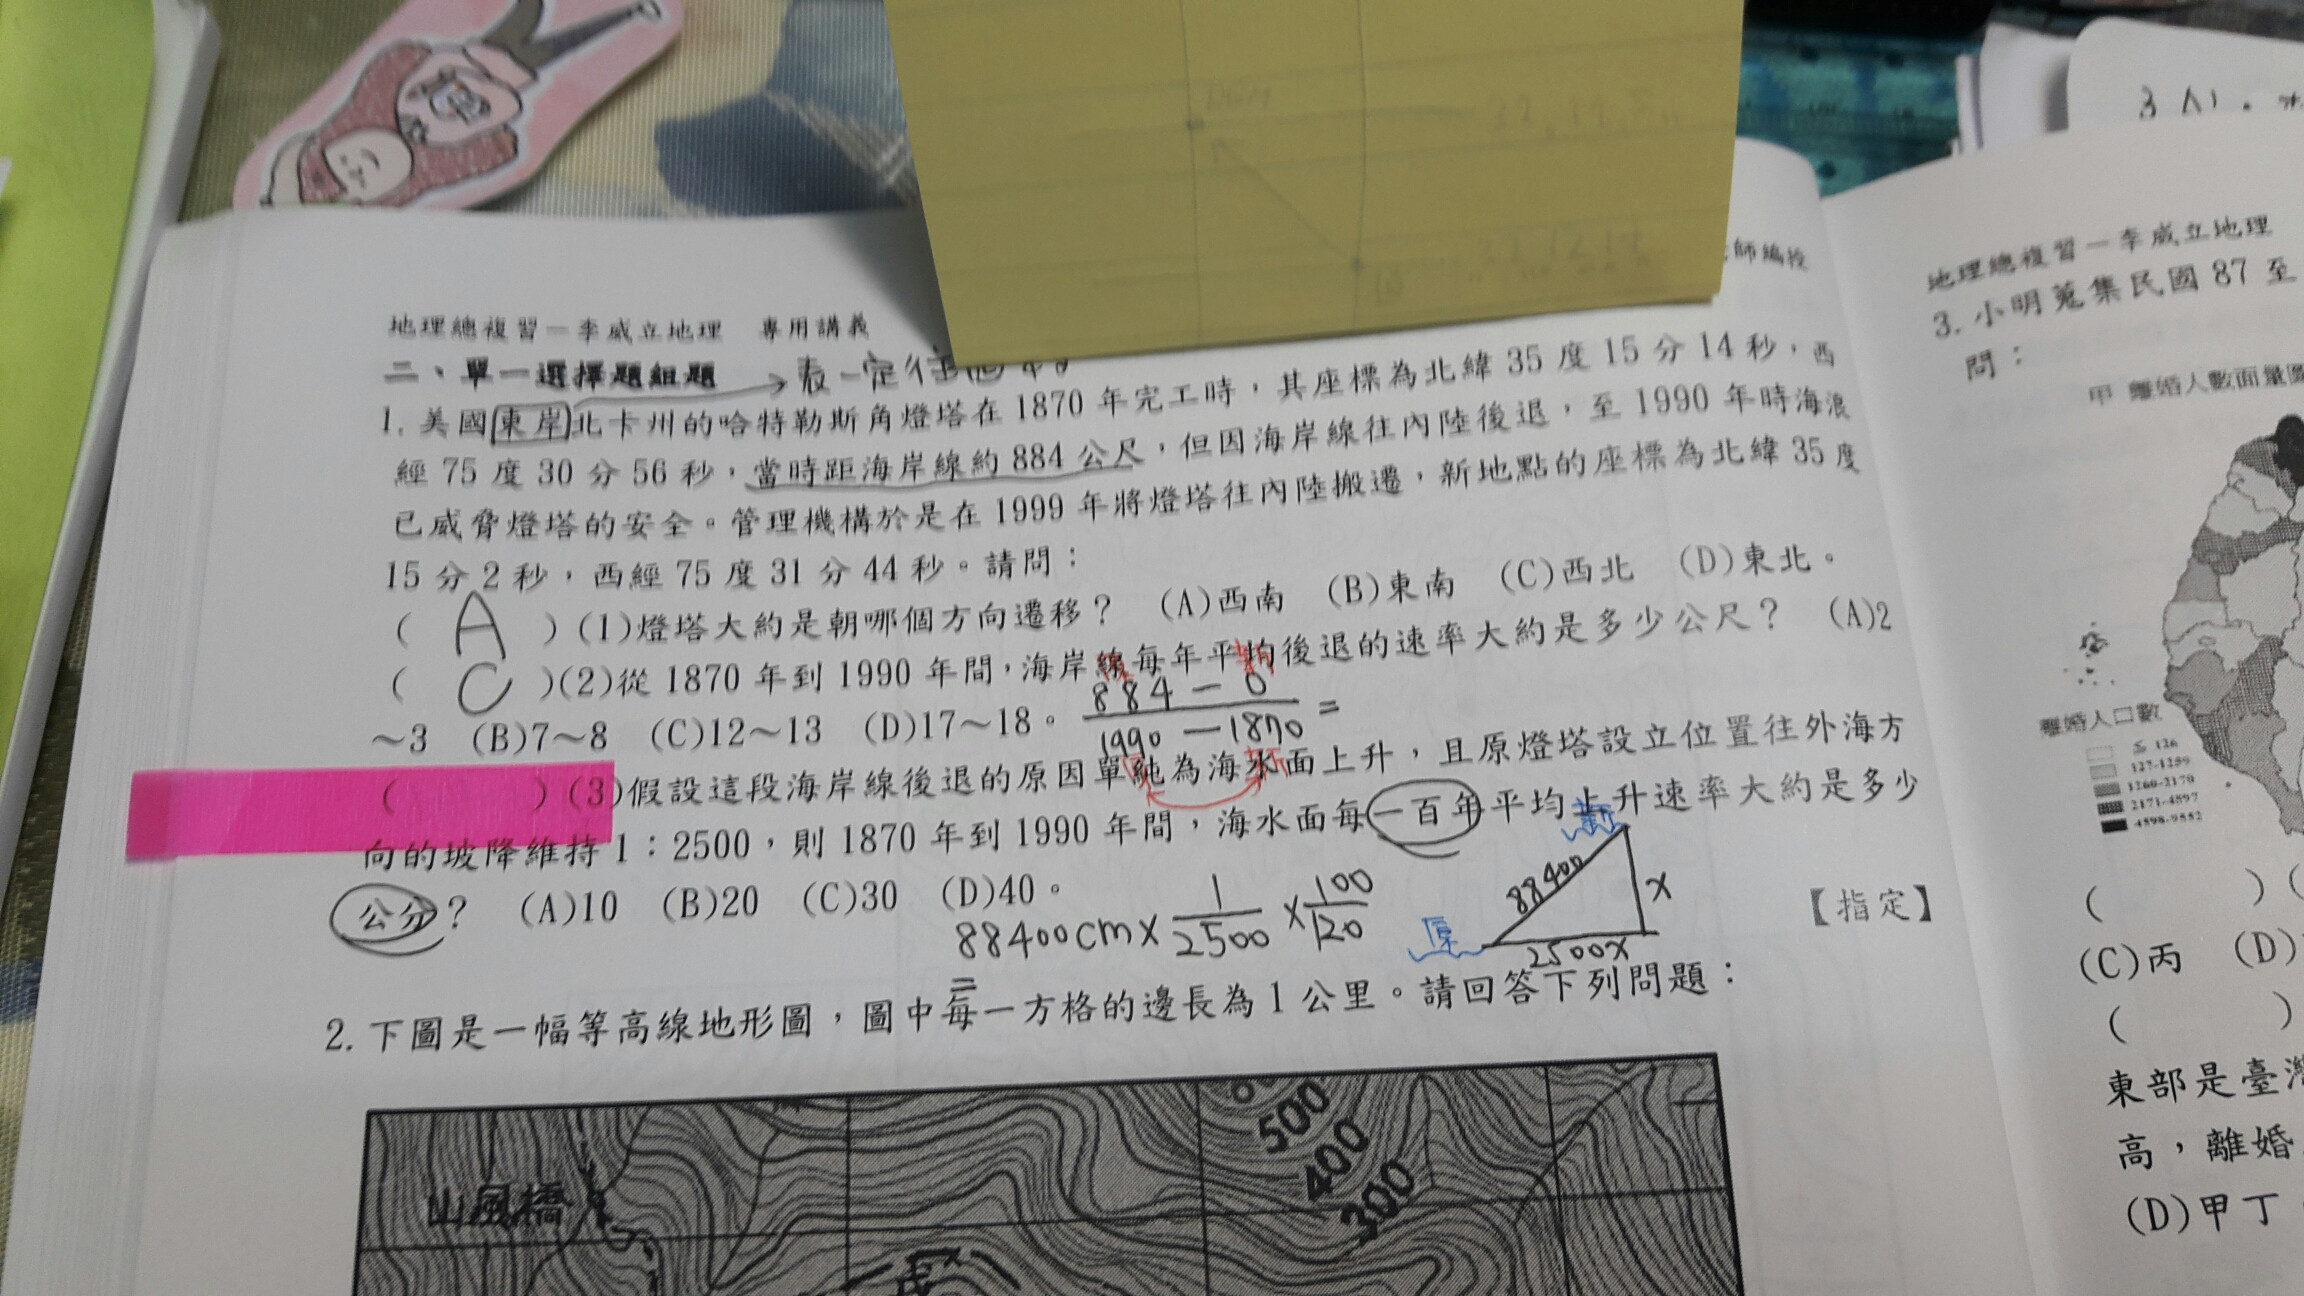 師編授
地理總複習－李威立地理　專用講義
二、單一選擇題組題
→表一定往
1. 美國東岸北卡州的哈特勒斯角燈塔在 1870 年完工時，其座標為北緯 35 度 15 分 14 秒，西
經 75 度 30 分 56 秒，當時距海岸線約 884 公尺，但因海岸線往內陸後退，至 1990 年時海浪
已威脅燈塔的安全。管理機構於是在 1999 年將燈塔往內陸搬遷，新地點的座標為北緯 35 度
15 分 2 秒，西經 75 度 31 分 44 秒。請問：
( A )(1)燈塔大約是朝哪個方向遷移？ (A)西南 (B)東南 (C)西北 (D)東北。
( C )(2)從 1870 年到 1990 年間，海岸線每年平均後退的速率大約是多少公尺？ (A)2
～3 (B)7～8 (C)12～13 (D)17～18。
884－0
1990－1870
=
( )(3)假設這段海岸線後退的原因單純為海水面上升，且原燈塔設立位置往外海方
向的坡降維持 1：2500，則 1870 年到 1990 年間，海水面每一百年平均上升速率大約是多少
公分？ (A)10 (B)20 (C)30 (D)40。
【指定】
88400cm× 1/2500 × 100/120
=
新
88400
x
原
2500x
2. 下圖是一幅等高線地形圖，圖中每一方格的邊長為 1 公里。請回答下列問題：
500
400
300
山風橋
地理總複習－李威立地理
3. 小明蒐集民國 87 至
問：
甲 離婚人數面量圖
離婚人口數
≦ 126
127-1259
1260-2170
2171-4597
4598-9552
( ) (
(C)丙 (D)
( )
東部是臺灣
高，離婚
(D)甲丁